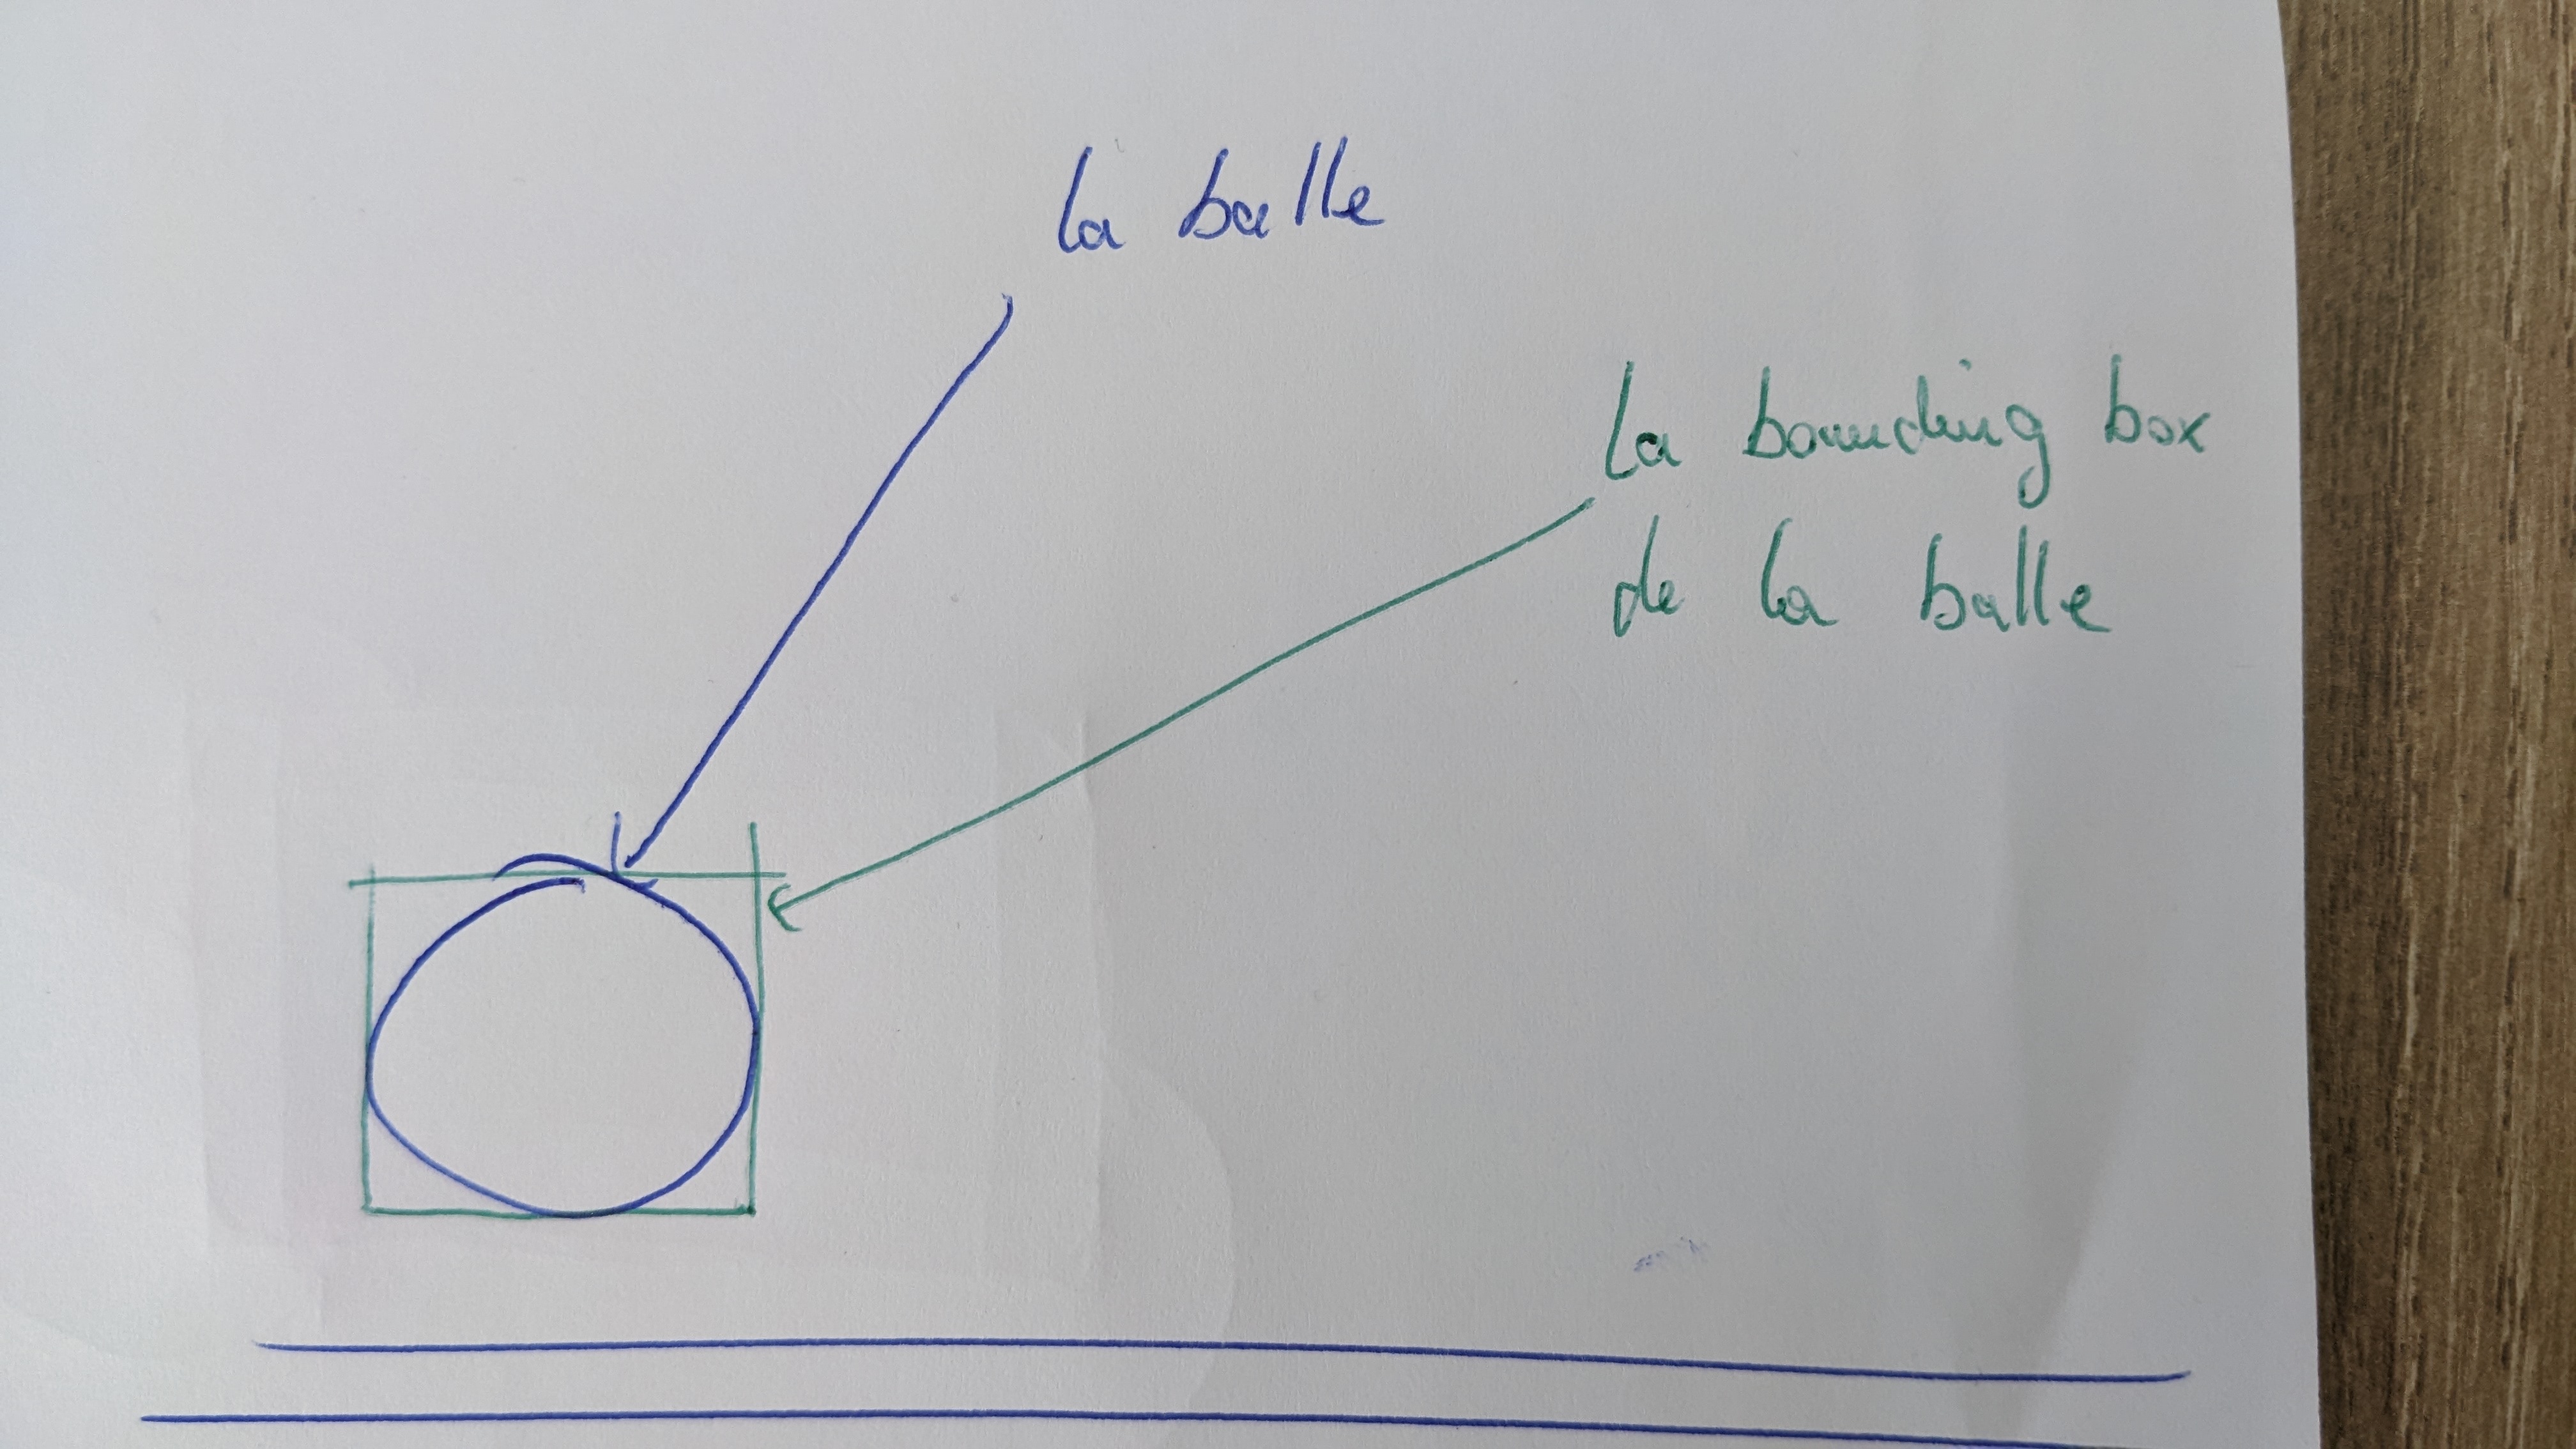 la balle
la bounding box
de la balle